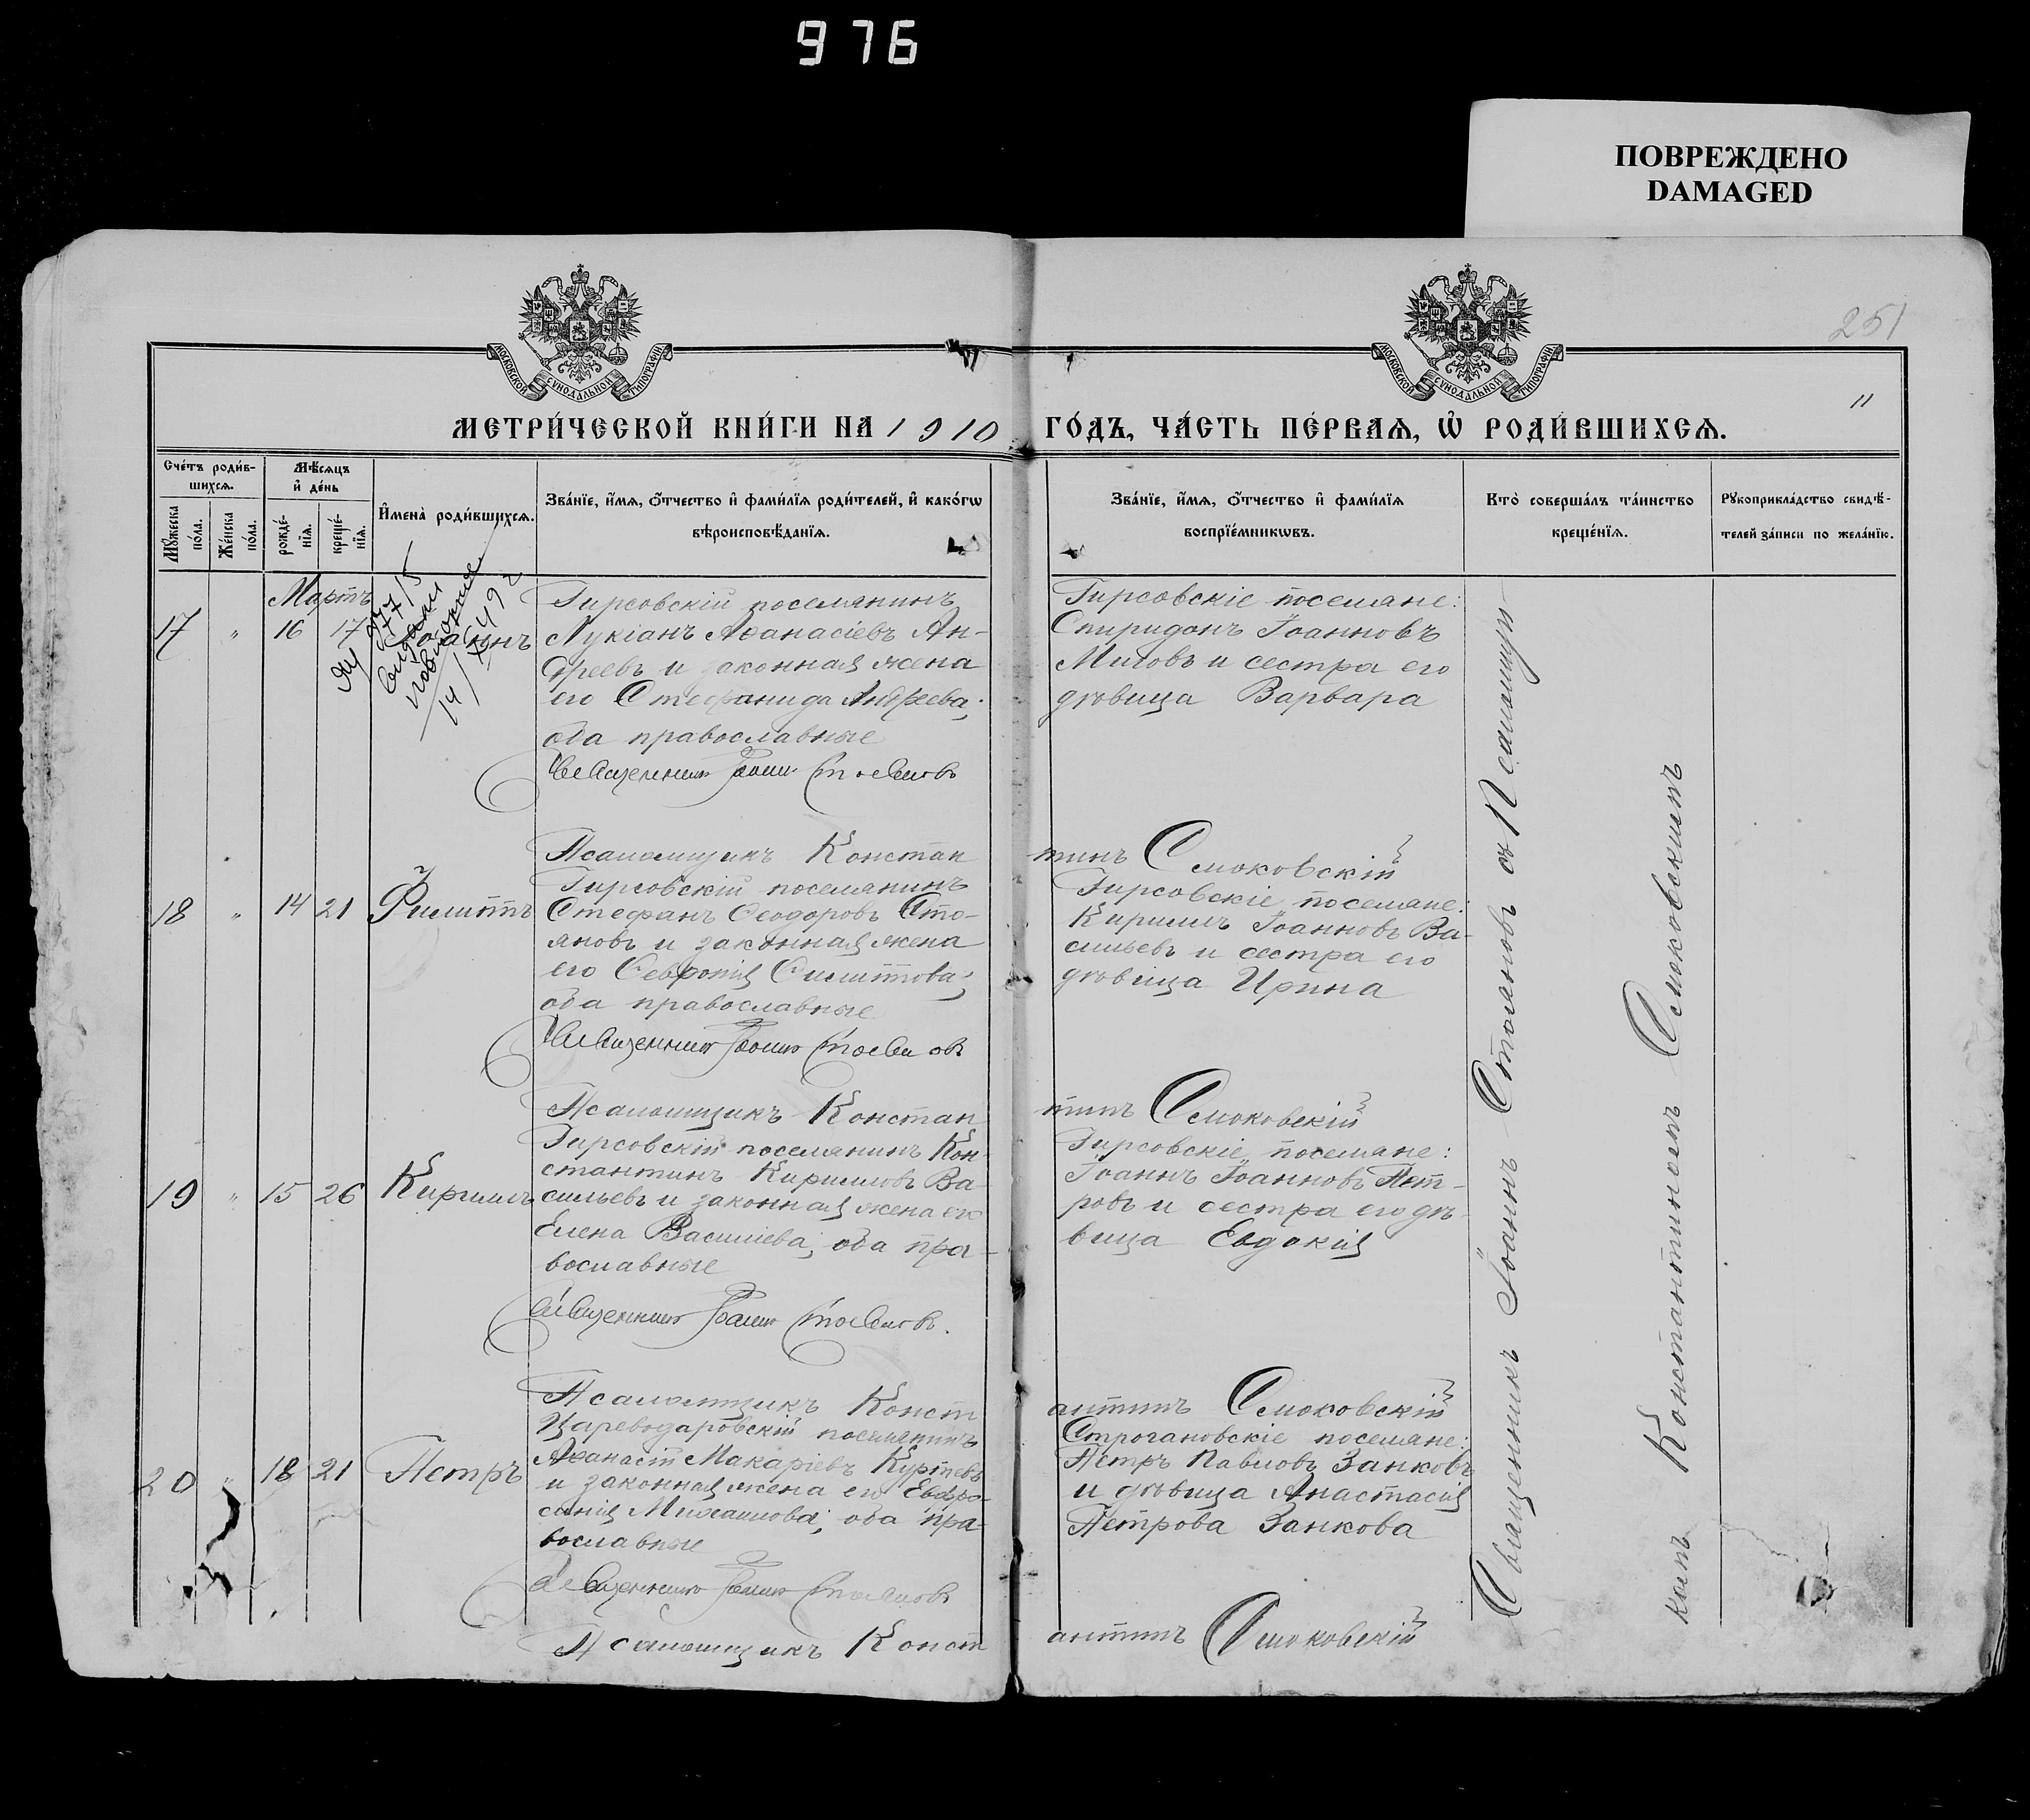 976
ПОВРЕЖДЕНО
DAMAGED
251
11
МОСКОВСКОЙ СѴНОДАЛЬНОЙ ТИПОГРАФІИ
МОСКОВСКОЙ СѴНОДАЛЬНОЙ ТИПОГРАФІИ
МЕТРИ́ЧЕСКОЙ КНИ́ГИ НА 1910 ГО́ДЪ, ЧА́СТЬ ПЕ́РВАѦ, Ѡ҆ РОДИ́ВШИХСѦ.
Сче́тъ роди́в-
шихсѧ.
Мꙋ́жеска по́ла.
Же́нска по́ла.
Мѣ́сѧцъ
и҆ де́нь
рожде́-
нїѧ.
креще́-
нїѧ.
И҆мена̀ роди́вшихсѧ.
Зва́нїе, и҆́мѧ, ѻ҆́тчество и҆ фами́лїѧ роди́телей, и҆ како́гѡ
вѣроисповѣ́данїѧ.
Зва́нїе, и҆́мѧ, ѻ҆́тчество и҆ фами́лїѧ
воспрїе́мникѡвъ.
Кто̀ соверша́лъ та́инство
креще́нїѧ.
Рꙋкоприкла́дство свидѣ́-
телей за́писи по жела́нїю.
Мартъ
17 " 16 17
Гирсовскій поселянинъ
Лукіанъ Аѳанасіевъ Ан-
дреевъ и законная жена
его Стефанида Андреева;
оба православные
Священникъ Іоаннъ Стояновъ
Гирсовскіе поселяне:
Спиридонъ Іоанновъ
Митовъ и сестра его
дѣвица Варвара
Псаломщикъ Константинъ Смоковскій
18 " 14 21 Филиппъ
Гирсовскій поселянинъ
Стефанъ Ѳеодоровъ Сто-
яновъ и законная жена
его Февронія Филиппова;
оба православные
Священникъ Іоаннъ Стояновъ
Гирсовскіе поселяне:
Кириллъ Іоанновъ Ва-
сильевъ и сестра его
дѣвица Ирина
Псаломщикъ Константинъ Смоковскій
19 " 15 26 Кириллъ
Гирсовскій поселянинъ Кон-
стантинъ Кирилловъ Ва-
сильевъ и законная жена его
Елена Василіева; оба пра-
вославные
Священникъ Іоаннъ Стояновъ.
Гирсовскіе поселяне:
Іоаннъ Іоанновъ Пет-
ровъ и сестра его дѣ-
вица Евдокія
Псаломщикъ Константинъ Смоковскій
20 " 18 21 Петръ
Цареводаровскій поселянинъ
Аѳанасій Макаріевъ Куртевъ
и законная жена его Евфро-
синія Михаилова; оба пра-
вославные
Священникъ Іоаннъ Стояновъ
Строгановскіе поселяне:
Петръ Павловъ Занковъ
и дѣвица Анастасія
Петрова Занкова
Псаломщикъ Константинъ Смоковскій
Священникъ Іоаннъ Стояновъ съ Псаломщи-
комъ Константиномъ Смоковскимъ